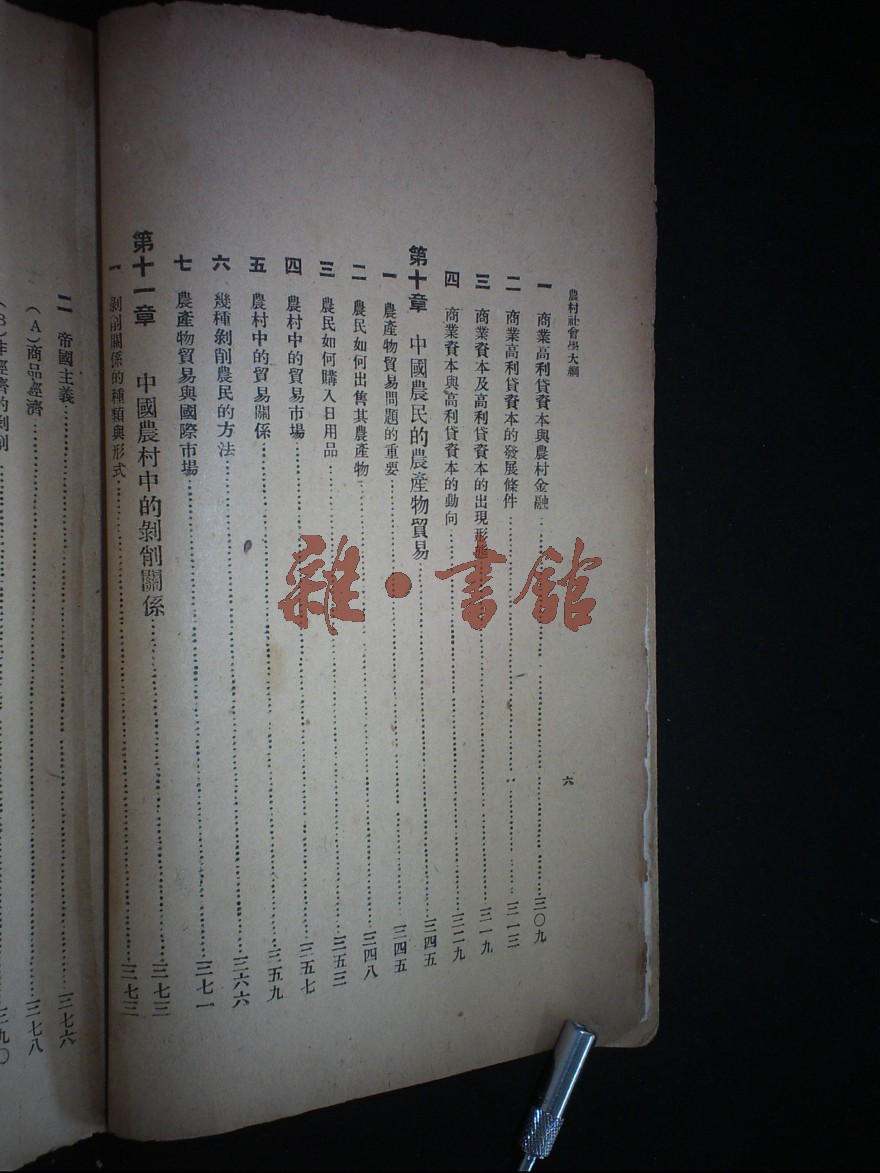 農村社會學大綱
六
一 商業高利貸資本與農村金融……三〇九
二 商業高利貸資本的發展條件……三一三
三 商業資本及高利貸資本的出現形態……三一九
四 商業資本與高利貸資本的動向……三二九
第十章 中國農民的農產物貿易……三四五
一 農產物貿易問題的重要……三四五
二 農民如何出售其農產物……三四八
三 農民如何購入日用品……三五三
四 農村中的貿易市場……三五七
五 農村中的貿易關係……三五九
六 幾種剝削農民的方法……三六六
七 農產物貿易與國際市場……三七一
第十一章 中國農村中的剝削關係……三七三
一 剝削關係的種類與形式……三七三
二 帝國主義……三七六
(A)商品經濟……三七八
(B)非經濟的剝削……三九〇
雜·書館